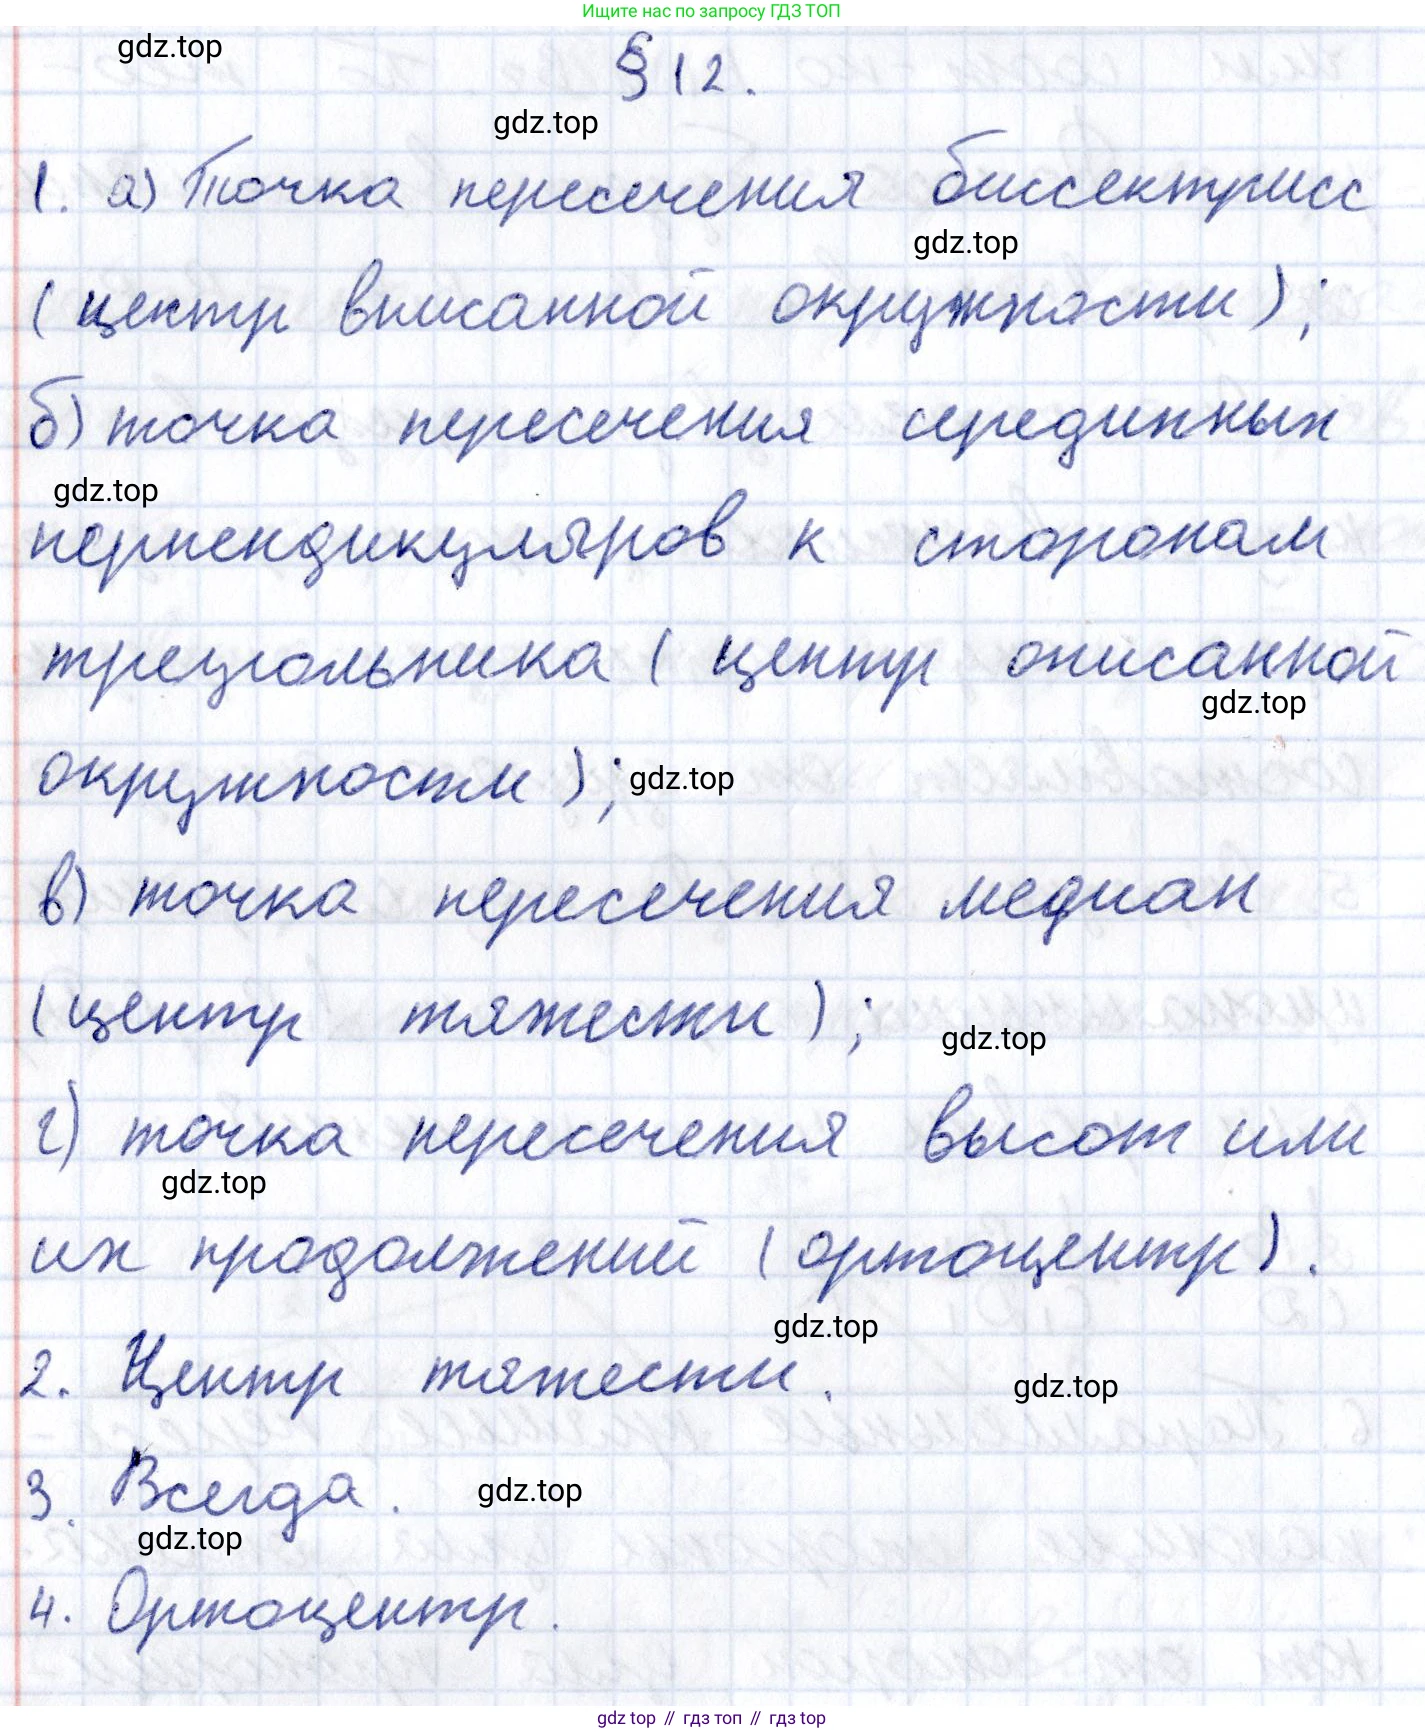 Ищите нас по запросу ГДЗ ТОП
gdz.top
§ 12.
gdz.top
1. а) Точка пересечения биссектрисс
gdz.top
(центр вписанной окружности);
б) точка пересечения серединных
gdz.top
перпендикуляров к сторонам
треугольника (центр описанной
gdz.top
окружности);
gdz.top
в) точка пересечения медиан
(центр тяжести);
gdz.top
г) точка пересечения высот или
gdz.top
их продолжений (ортоцентр).
gdz.top
2. Центр тяжести.
gdz.top
3. Всегда.
gdz.top
gdz.top
4. Ортоцентр.
gdz top // гдз топ // gdz top